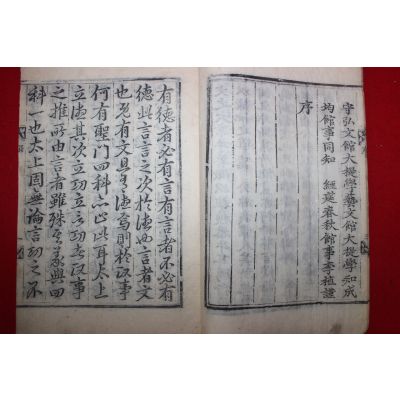 守弘文館大提學藝文館大提學知成
均館事同知 經筵春秋館事李植謹
序
有德者必有言有言者不必有
德此言言之次於德也言者文
也有文焉則於政事
何有聖門四科亦以此耳太上
立德其次立功立言功者政事
之推所由言者雖殊義與四
科一也太上固無論言功之不